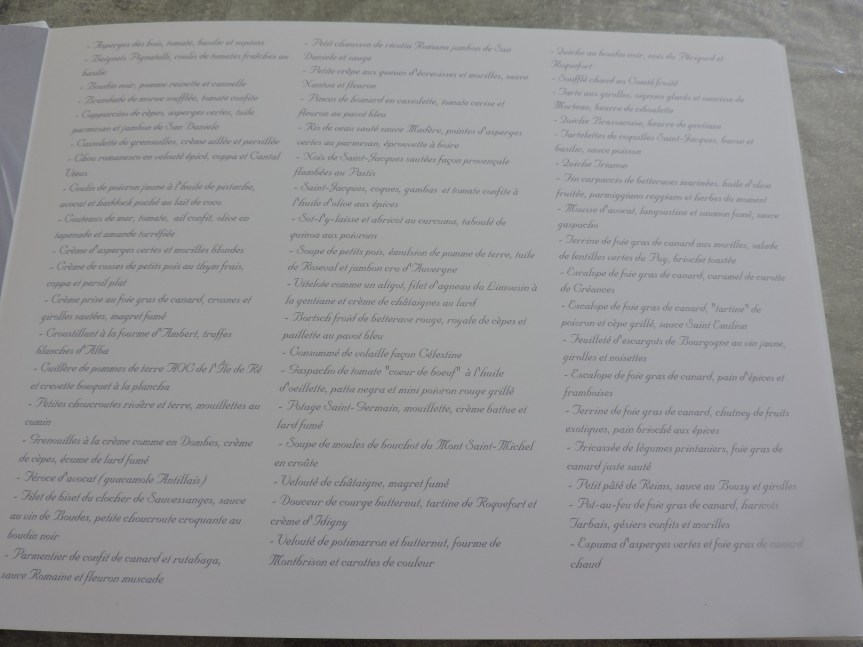 - Asperges des bois, tomate, basilic et oignons
- Beignets Pignatelli, coulis de tomates fraîches au
basilic
- Boudin noir, pomme reinette et cannelle
- Brandade de morue soufflée, tomate confite
- Cappuccino de cèpes, asperges vertes, tuile
parmesan et jambon de San Daniele
- Cassolette de grenouilles, crème aillée et persillée
- Chou romanesco en velouté épicé, coppa et Cantal
Vieux
- Coulis de poivron jaune à l'huile de pistache,
avocat et haddock poché au lait de coco
- Couteaux de mer, tomate, ail confit, olive en
tapenade et amande torréfiée
- Crème d'asperges vertes et morilles blondes
- Crème de cosses de petits pois au thym frais,
coppa et persil plat
- Crème prise au foie gras de canard, crosnes et
girolles sautées, magret fumé
- Croustillant à la fourme d'Ambert, truffes
blanches d'Alba
- Cuillère de pommes de terre AOC de l'Île de Ré
et crevette bouquet à la plancha
- Petites choucroutes rivière et terre, mouillettes au
cumin
- Grenouilles à la crème comme en Dombes, crème
de cèpes, écume de lard fumé
- Féroce d'avocat (guacamole Antillais)
- Filet de biset du clocher de Sauvessanges, sauce
au vin de Boudes, petite choucroute croquante au
boudin noir
- Parmentier de confit de canard et rutabaga,
sauce Romaine et fleuron muscade
- Petit chausson de ricotta Romane jambon de San
Daniele et sauge
- Petite crêpe aux queues d'écrevisses et morilles, sauce
Nantua et fleuron
- Pinces de homard en cassolette, tomate cerise et
fleuron au pavot bleu
- Ris de veau sauté sauce Madère, pointes d'asperges
vertes au parmesan, éprouvette à boire
- Noix de Saint-Jacques sautées façon provençale
flambées au Pastis
- Saint-Jacques, coques, gambas et tomate confite à
l'huile d'olive aux épices
- Sot-l'y-laisse et abricot au curcuma, taboulé de
quinoa aux poivrons
- Soupe de petits pois, émulsion de pomme de terre, tuile
de Roseval et jambon cru d'Auvergne
- Vitelote comme un aligot, filet d'agneau du Limousin à
la gentiane et crème de châtaignes au lard
- Bortsch froid de betterave rouge, royale de cèpes et
paillette au pavot bleu
- Consommé de volaille façon Célestine
- Gaspacho de tomate "coeur de boeuf" à l'huile
d'oeillette, patta negra et mini poivron rouge grillé
- Potage Saint-Germain, mouillette, crème battue et
lard fumé
- Soupe de moules de bouchot du Mont Saint-Michel
en croûte
- Velouté de châtaigne, magret fumé
- Douceur de courge butternut, tartine de Roquefort et
crème d'Isigny
- Velouté de potimarron et butternut, fourme de
Montbrison et carottes de couleur
- Quiche au boudin noir, noix du Périgord et
Roquefort
- Soufflé chaud au Comté fruité
- Tarte aux girolles, oignons glacés et saucisse de
Morteau, beurre de ciboulette
- Quiche Brassacoise, beurre de gentiane
- Tartelettes de coquilles Saint-Jacques, bacon et
basilic, sauce poisson
- Quiche Trianon
- Fin carpaccio de betteraves marinées, huile d'olive
fruitée, parmiggiano reggiano et herbes du moment
- Mousse d'avocat, langoustine et saumon fumé, sauce
gaspacho
- Terrine de foie gras de canard aux morilles, salade
de lentilles vertes du Puy, brioche toastée
- Escalope de foie gras de canard, caramel de carotte
de Créances
- Escalope de foie gras de canard, "tartine" de
poivron et cèpe grillé, sauce Saint Emilion
- Feuilleté d'escargots de Bourgogne au vin jaune,
girolles et noisettes
- Escalope de foie gras de canard, pain d'épices et
framboises
- Terrine de foie gras de canard, chutney de fruits
exotiques, pain brioché aux épices
- Fricassée de légumes printaniers, foie gras de
canard juste sauté
- Petit pâté de Reims, sauce au Bouzy et girolles
- Pot-au-feu de foie gras de canard, haricots
Tarbais, gésiers confits et morilles
- Espuma d'asperges vertes et foie gras de canard
chaud